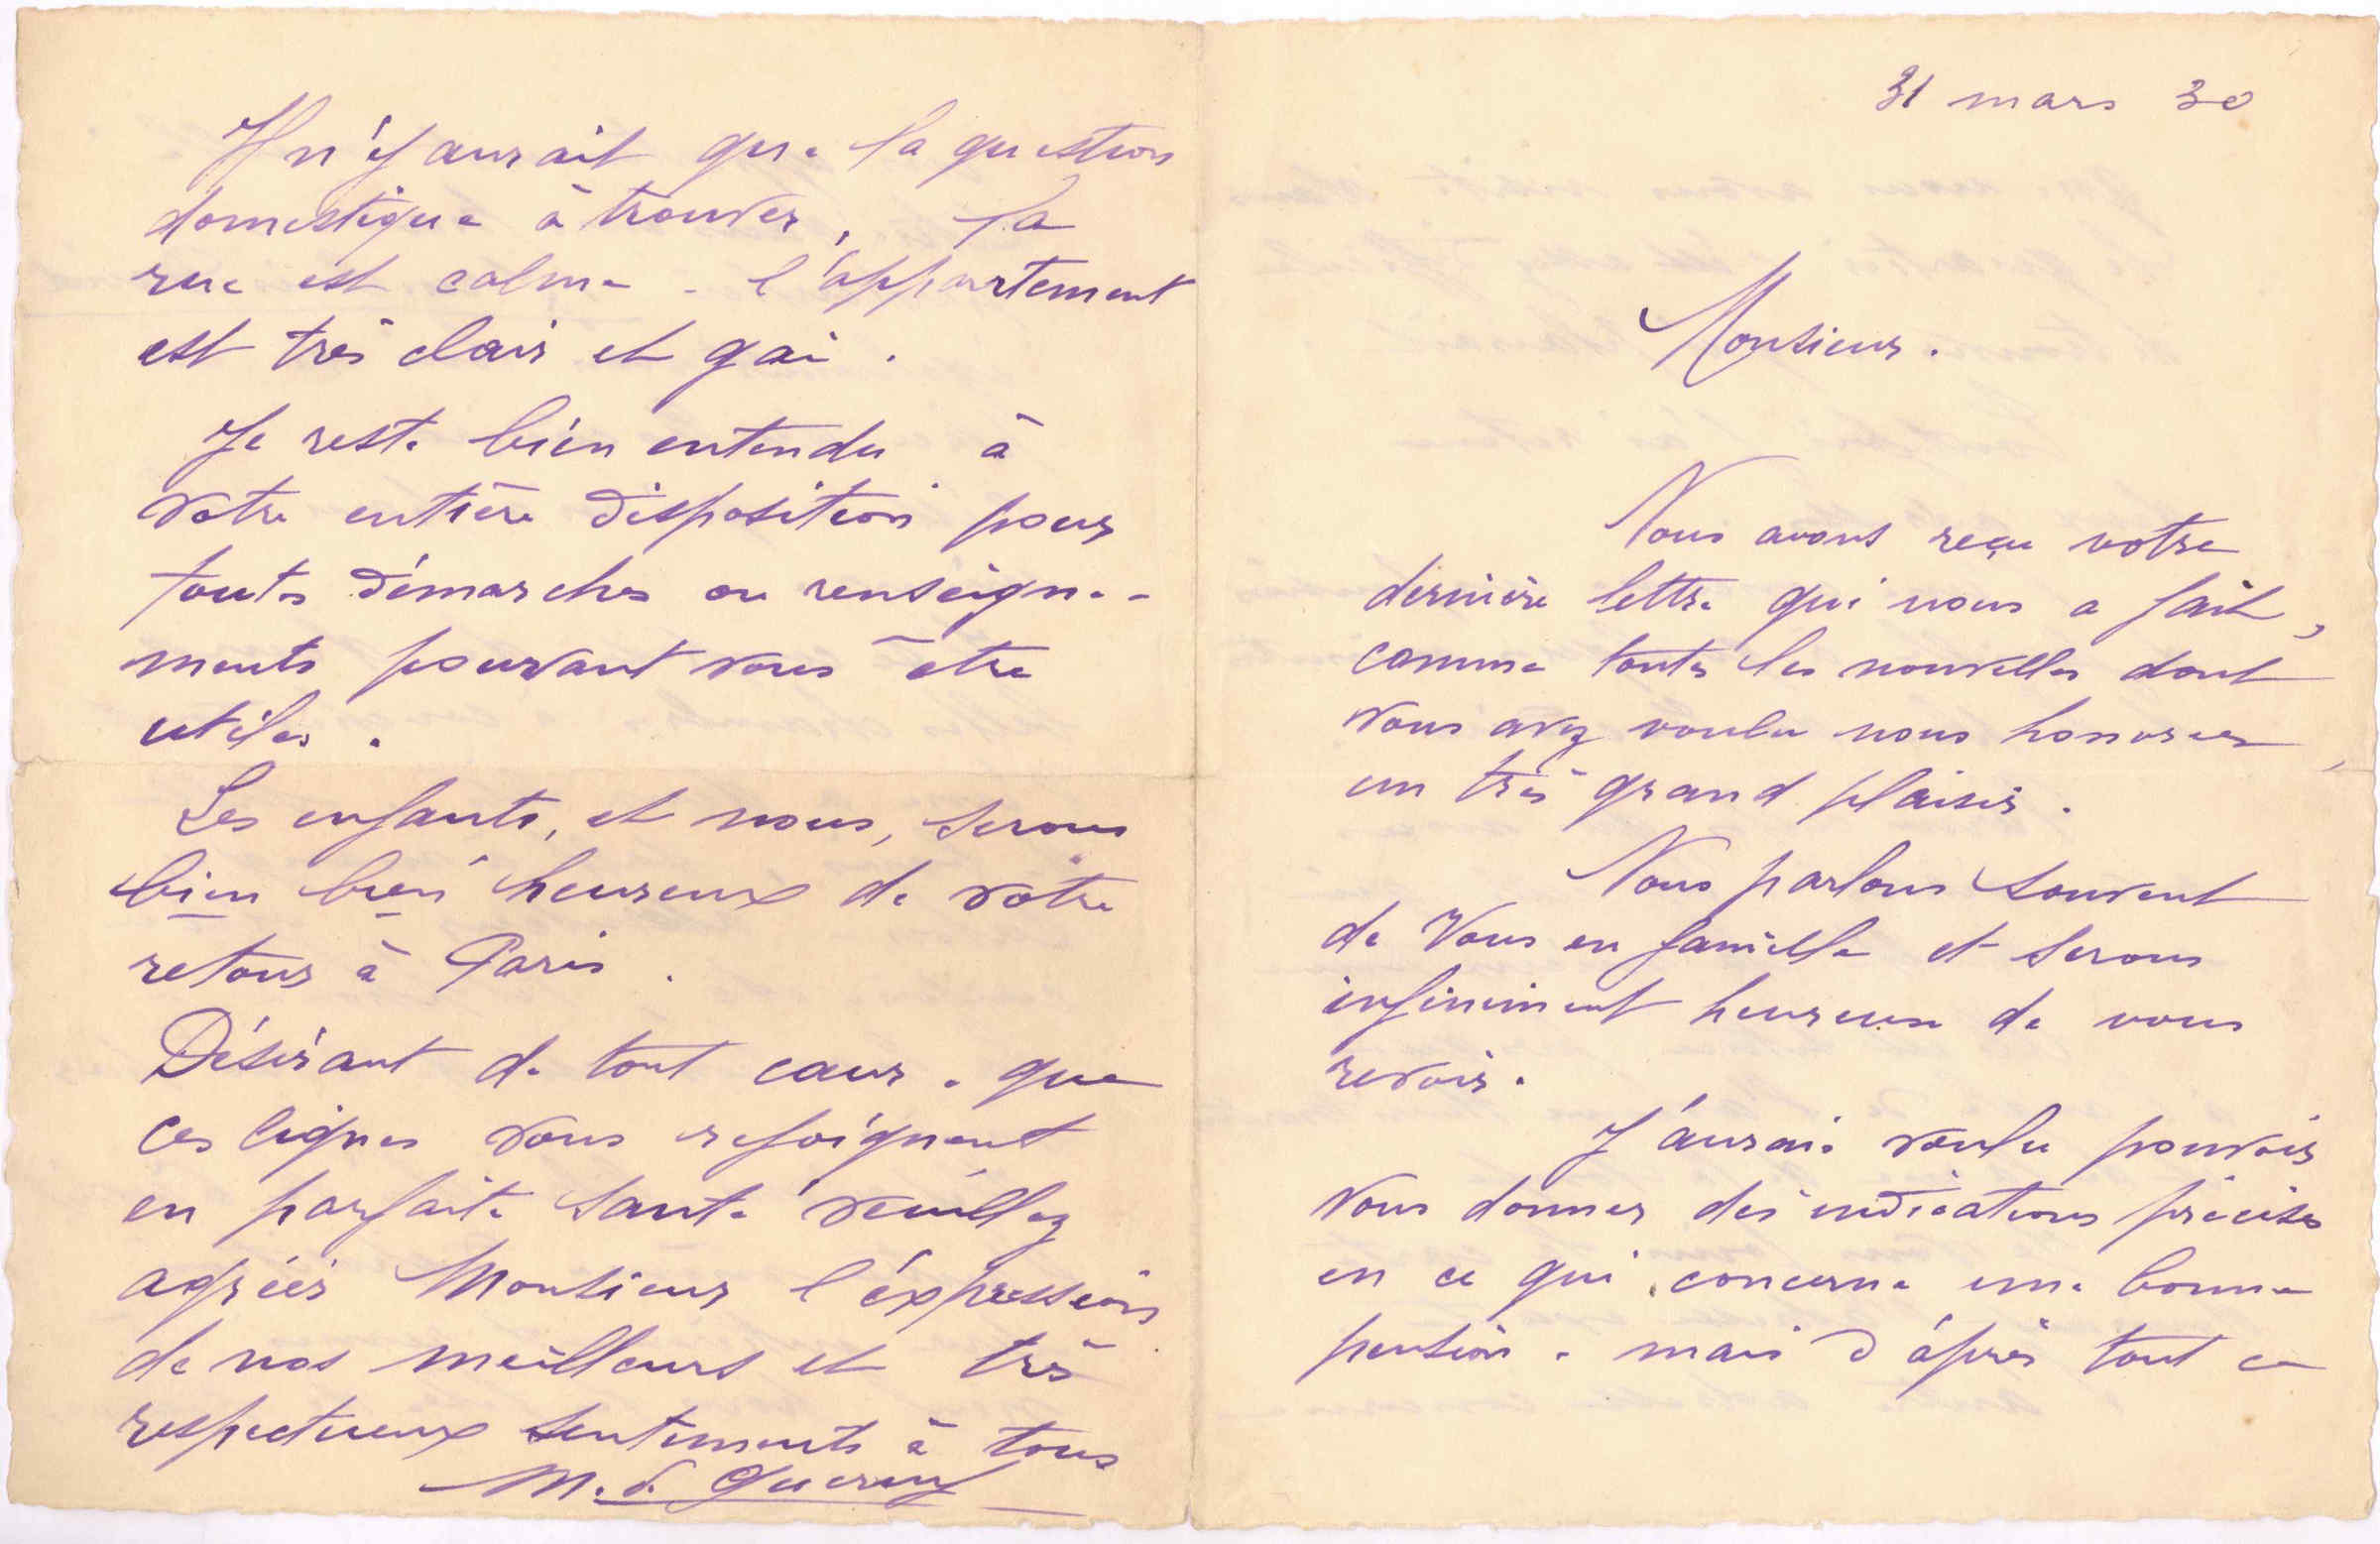 31 mars 30
Monsieur.
Nous avons reçu votre
dernière lettre qui nous a fait,
comme toutes les nouvelles dont
vous avez voulu nous honorer,
un très grand plaisir.
Nous parlons souvent
de Vous en famille et serons
infiniment heureux de vous
revoir.
J'aurais voulu pouvoir
vous donner des indications précises
en ce qui concerne une bonne
pension. mais d'après tout ce
Il n'y aurait que la question
domestique à trouver, la
rue est calme - l'appartement
est très clair et gai.
Je reste bien entendu à
votre entière disposition pour
toutes démarches ou renseigne-
ments pouvant vous être
utiles.
Les enfants, et nous, serons
bien bien heureux de votre
retour à Paris.
Désirant de tout cœur. que
ces lignes vous rejoignent
en parfaite santé veuillez
agréer Monsieur l'expression
de nos meilleurs et très
respectueux sentiments à tous
M. de